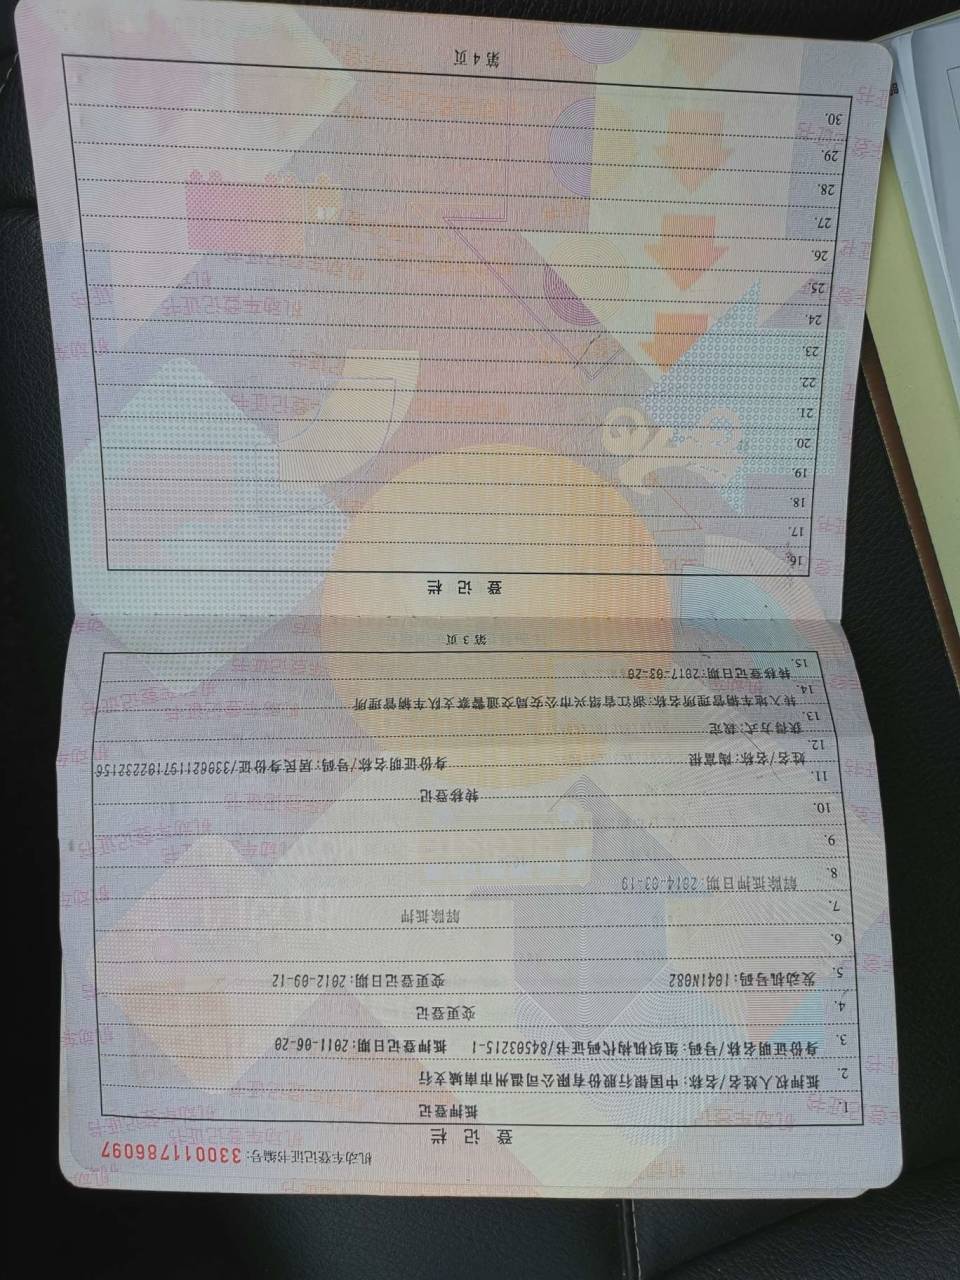 机动车登记证书编号: 330011786097
登 记 栏
1. 抵押登记
2. 抵押权人姓名/名称: 中国银行股份有限公司温州市南城支行
3. 身份证明名称/号码: 组织机构代码证书/84503215-1 抵押登记日期: 2011-06-20
4. 变更登记
5. 发动机号码: 1041N082 变更登记日期: 2012-09-12
6.
7. 解除抵押
8. 解除抵押日期: 2014-03-19
9.
10.
11. 转移登记
12. 姓名/名称: 陶富根 身份证明名称/号码: 居民身份证/330621197102232156
13. 获得方式: 裁定
14. 转入地车辆管理所名称: 浙江省绍兴市公安局交通警察支队车辆管理所
15. 转移登记日期: 2017-03-20
第 3 页
登 记 栏
16.
17.
18.
19.
20.
21.
22.
23.
24.
25.
26.
27.
28.
29.
30.
第 4 页